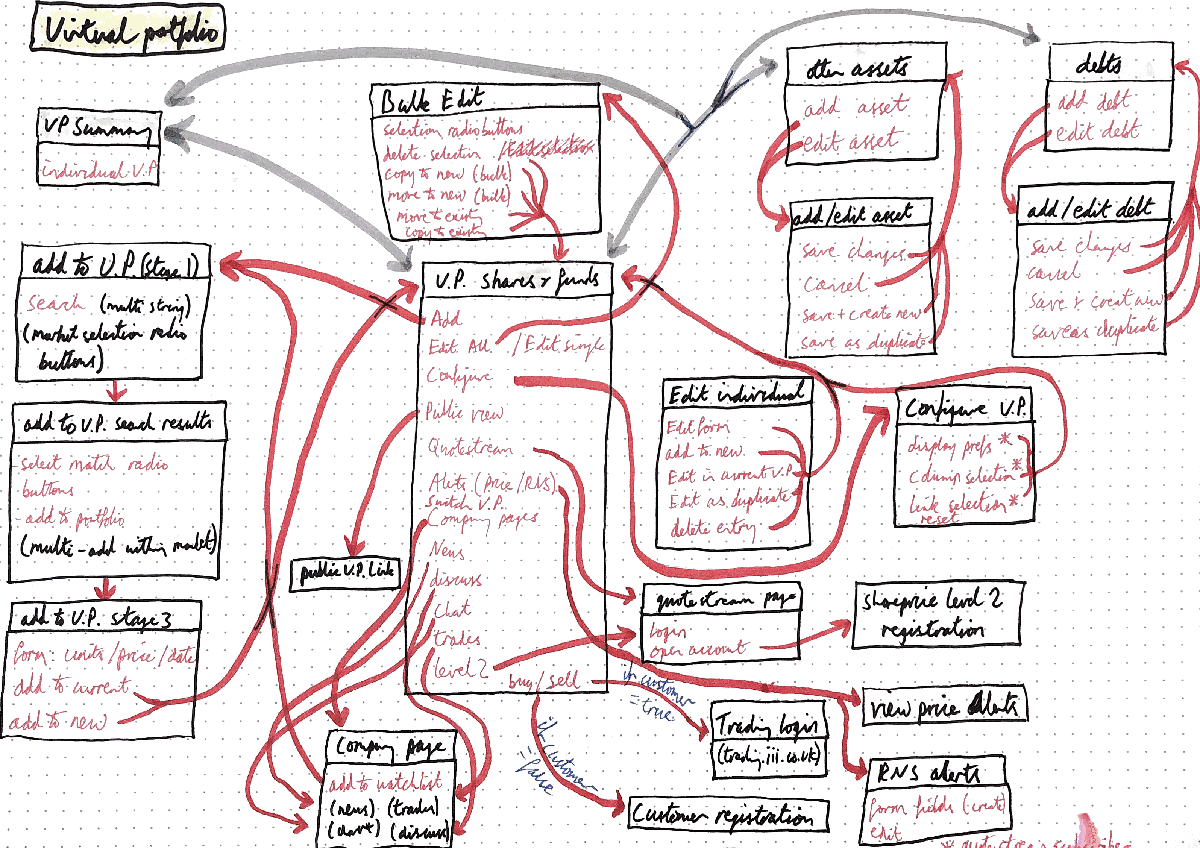 Virtual portfolio
VP Summary
individual V.P
Bulk Edit
selection radiobuttons
delete selection /
copy to new (bulk)
move to new (bulk)
move to existing
copy to existing
other assets
add asset
edit asset
debts
add debt
edit debt
add/edit asset
save changes
Cancel
save + create new
save as duplicate
add/edit debt
save changes
cancel
save + creat new
save as duplicate
add to V.P (stage 1)
search (multi string)
(market selection radio
buttons)
add to V.P. search results
select match radio
buttons
- add to portfolio
(multi-add within market)
add to V.P. stage 3
form: units/price/date
add to current
add to new
V.P. shares + funds
Add
Edit All / Edit single
Configure
Public view
Quotestream
Alerts (price/RNS)
Switch V.P.
Company pages
News
discuss
Chat
trades
level 2
buy/sell
public V.P. Link
Edit individual
Edit form
add to new
Edit in current V.P
Edit as duplicate
delete entry
Configure V.P.
display prefs *
selection *
link selection *
reset
quotestream page
login
open account
Shareprice level 2
registration
view price alerts
RNS alerts
form fields (create)
edit
if customer
= true
if customer
= false
Trading login
(trading.iii.co.uk)
Customer registration
Company page
add to watchlist
(news) (trades)
(chart) (discuss)